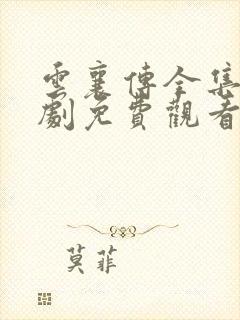 雲襄傳全集
劇免費觀看
莫菲